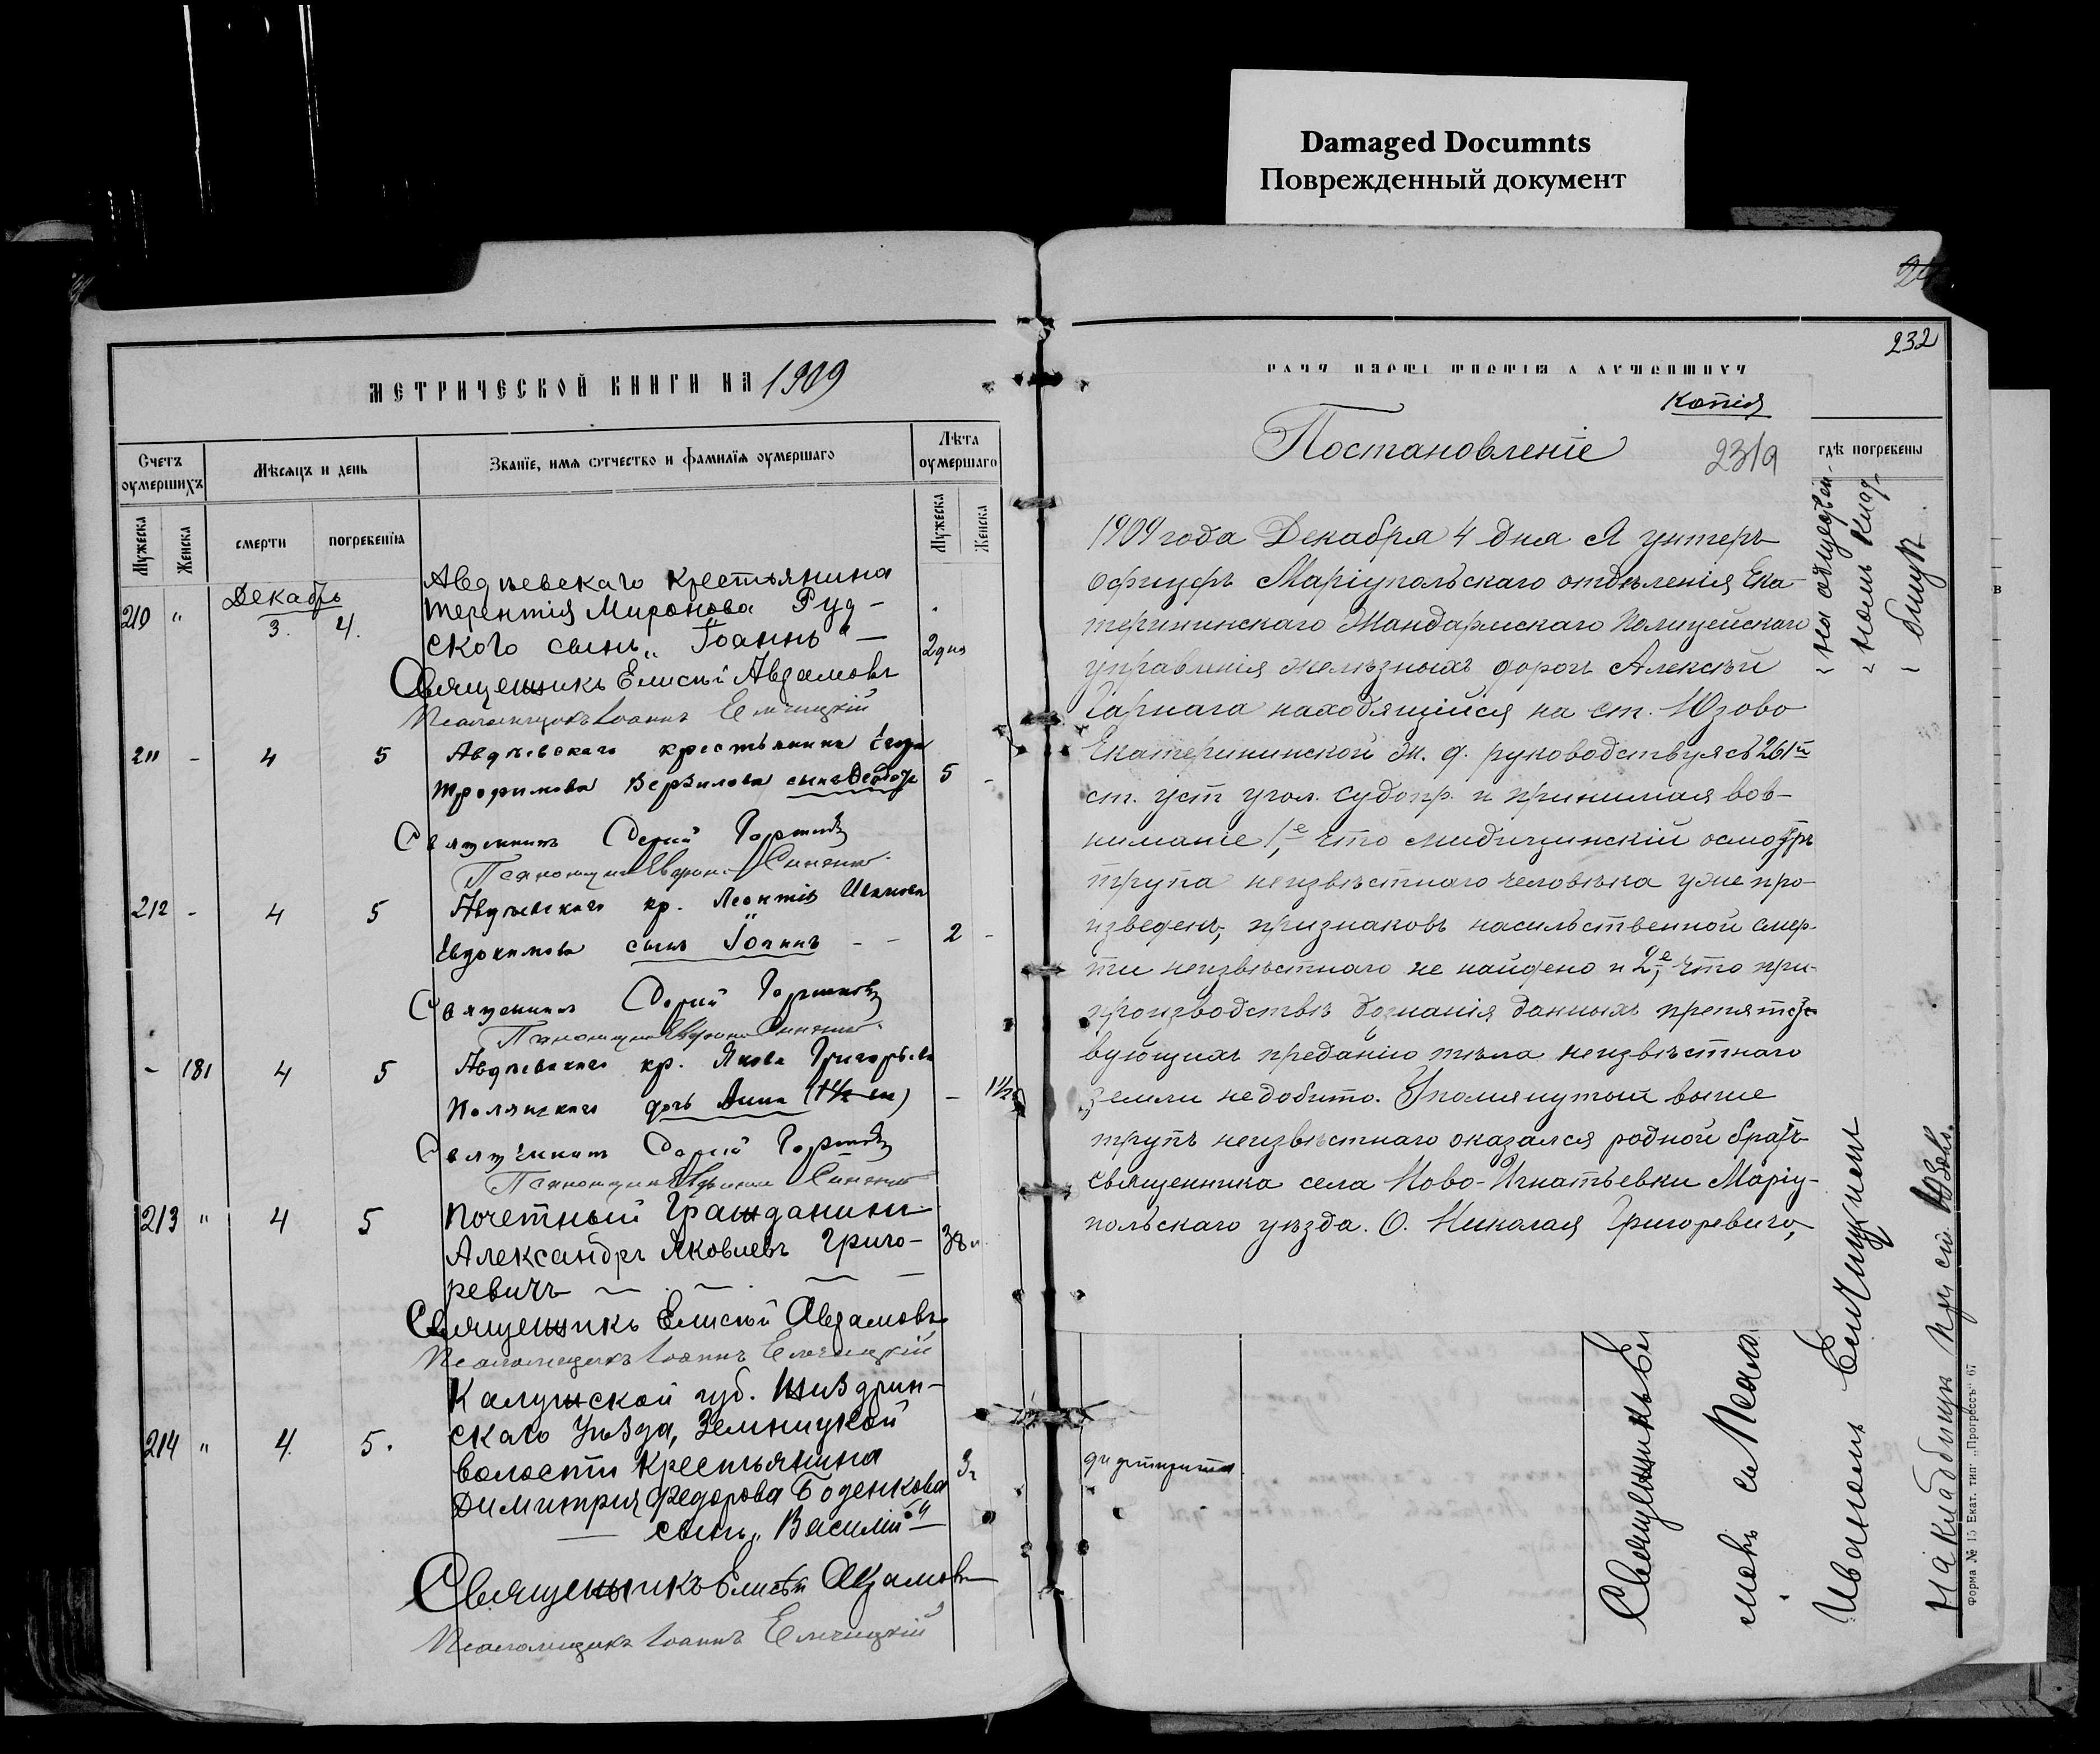 Damaged Documnts
Поврежденный документ
МЕТРИЧЕСКОЙ КНИГИ НА 1909
Счетъ оумершихъ
Мѣсяцъ и день
Званїе, имя отчество и фамилїя оумершаго
Лѣта оумершаго
Мужеска
Женска
смерти
погребенїя
Мужеска
Женска
Декабрь
210 " 3. 4.
Авдѣевскаго крестьянина
Терентія Миронова Руд-
ского сынъ „Іоаннъ" —
2 дня
Священникъ Елисѣй Авдамовъ
Псаломщикъ Іоаннъ Елчицкій
211 - 4 5
Авдѣевскаго крестьянина
Трофимова Верзилова сынъ Ѳеодоръ 5 -
Священникъ Сергій
Псаломщикъ
212 - 4 5
Авдѣевскаго кр. Леонтія Иванова
Евдокимова сынъ Іоаннъ - - 2 -
Священникъ Сергій
Псаломщикъ
- 181 4 5
Авдѣевскаго кр. Якова Григорьева
Полянскаго дочь Анна - 1½
Священникъ Сергій
Псаломщикъ
213 " 4 5
Почетный Гражданинъ
Александръ Яковлевъ Григо- 38
ревичъ
Священникъ Елисѣй Авдамовъ
Псаломщикъ Іоаннъ Елчицкій
214 " 4. 5.
Калужской губ. Жиздрин-
скаго Уѣзда, Земницкой
волости крестьянина
Димитрия Федорова Боденкова
3г
сынъ „Василій" —
Священникъ Елисѣй Авдамовъ
Псаломщикъ Іоаннъ Елчицкій
232
Копія
Постановленіе
231а
гдѣ погребены
1909 года Декабря 4 дня Я унтеръ
офицеръ Маріупольскаго отдѣленія Ека-
терининскаго Жандармскаго Полицейскаго
управленія желѣзныхъ дорогъ Алексѣй
Гарнага находящійся на ст. Юзово
Екатерининской ж. д. руководствуясь 261й
ст. уст угол. судопр. и принимая вов-
ниманіе 1е, что медицинскій осмотръ
трупа неизвѣстнаго человѣка уже про-
изведенъ, признаковъ насильственной смер-
ти неизвѣстнаго не найдено и 2е, что при
производствѣ дознанія данныхъ препятст-
вующихъ преданію тѣла неизвѣстнаго
земли недобыто. Упомянутый выше
трупъ неизвѣстнаго оказался родной братъ
священника села Ново-Игнатьевки Маріу-
польскаго уѣзда. О. Николая Григоревича,
На общеприход-
номъ клад-
бищѣ.
дифтерита
Священникъ
мовъ съ Псало
Иваномъ Елчицкимъ
На кладбищѣ при ст.
Форма № 15 Екат. тип. „Прогрессъ" 67